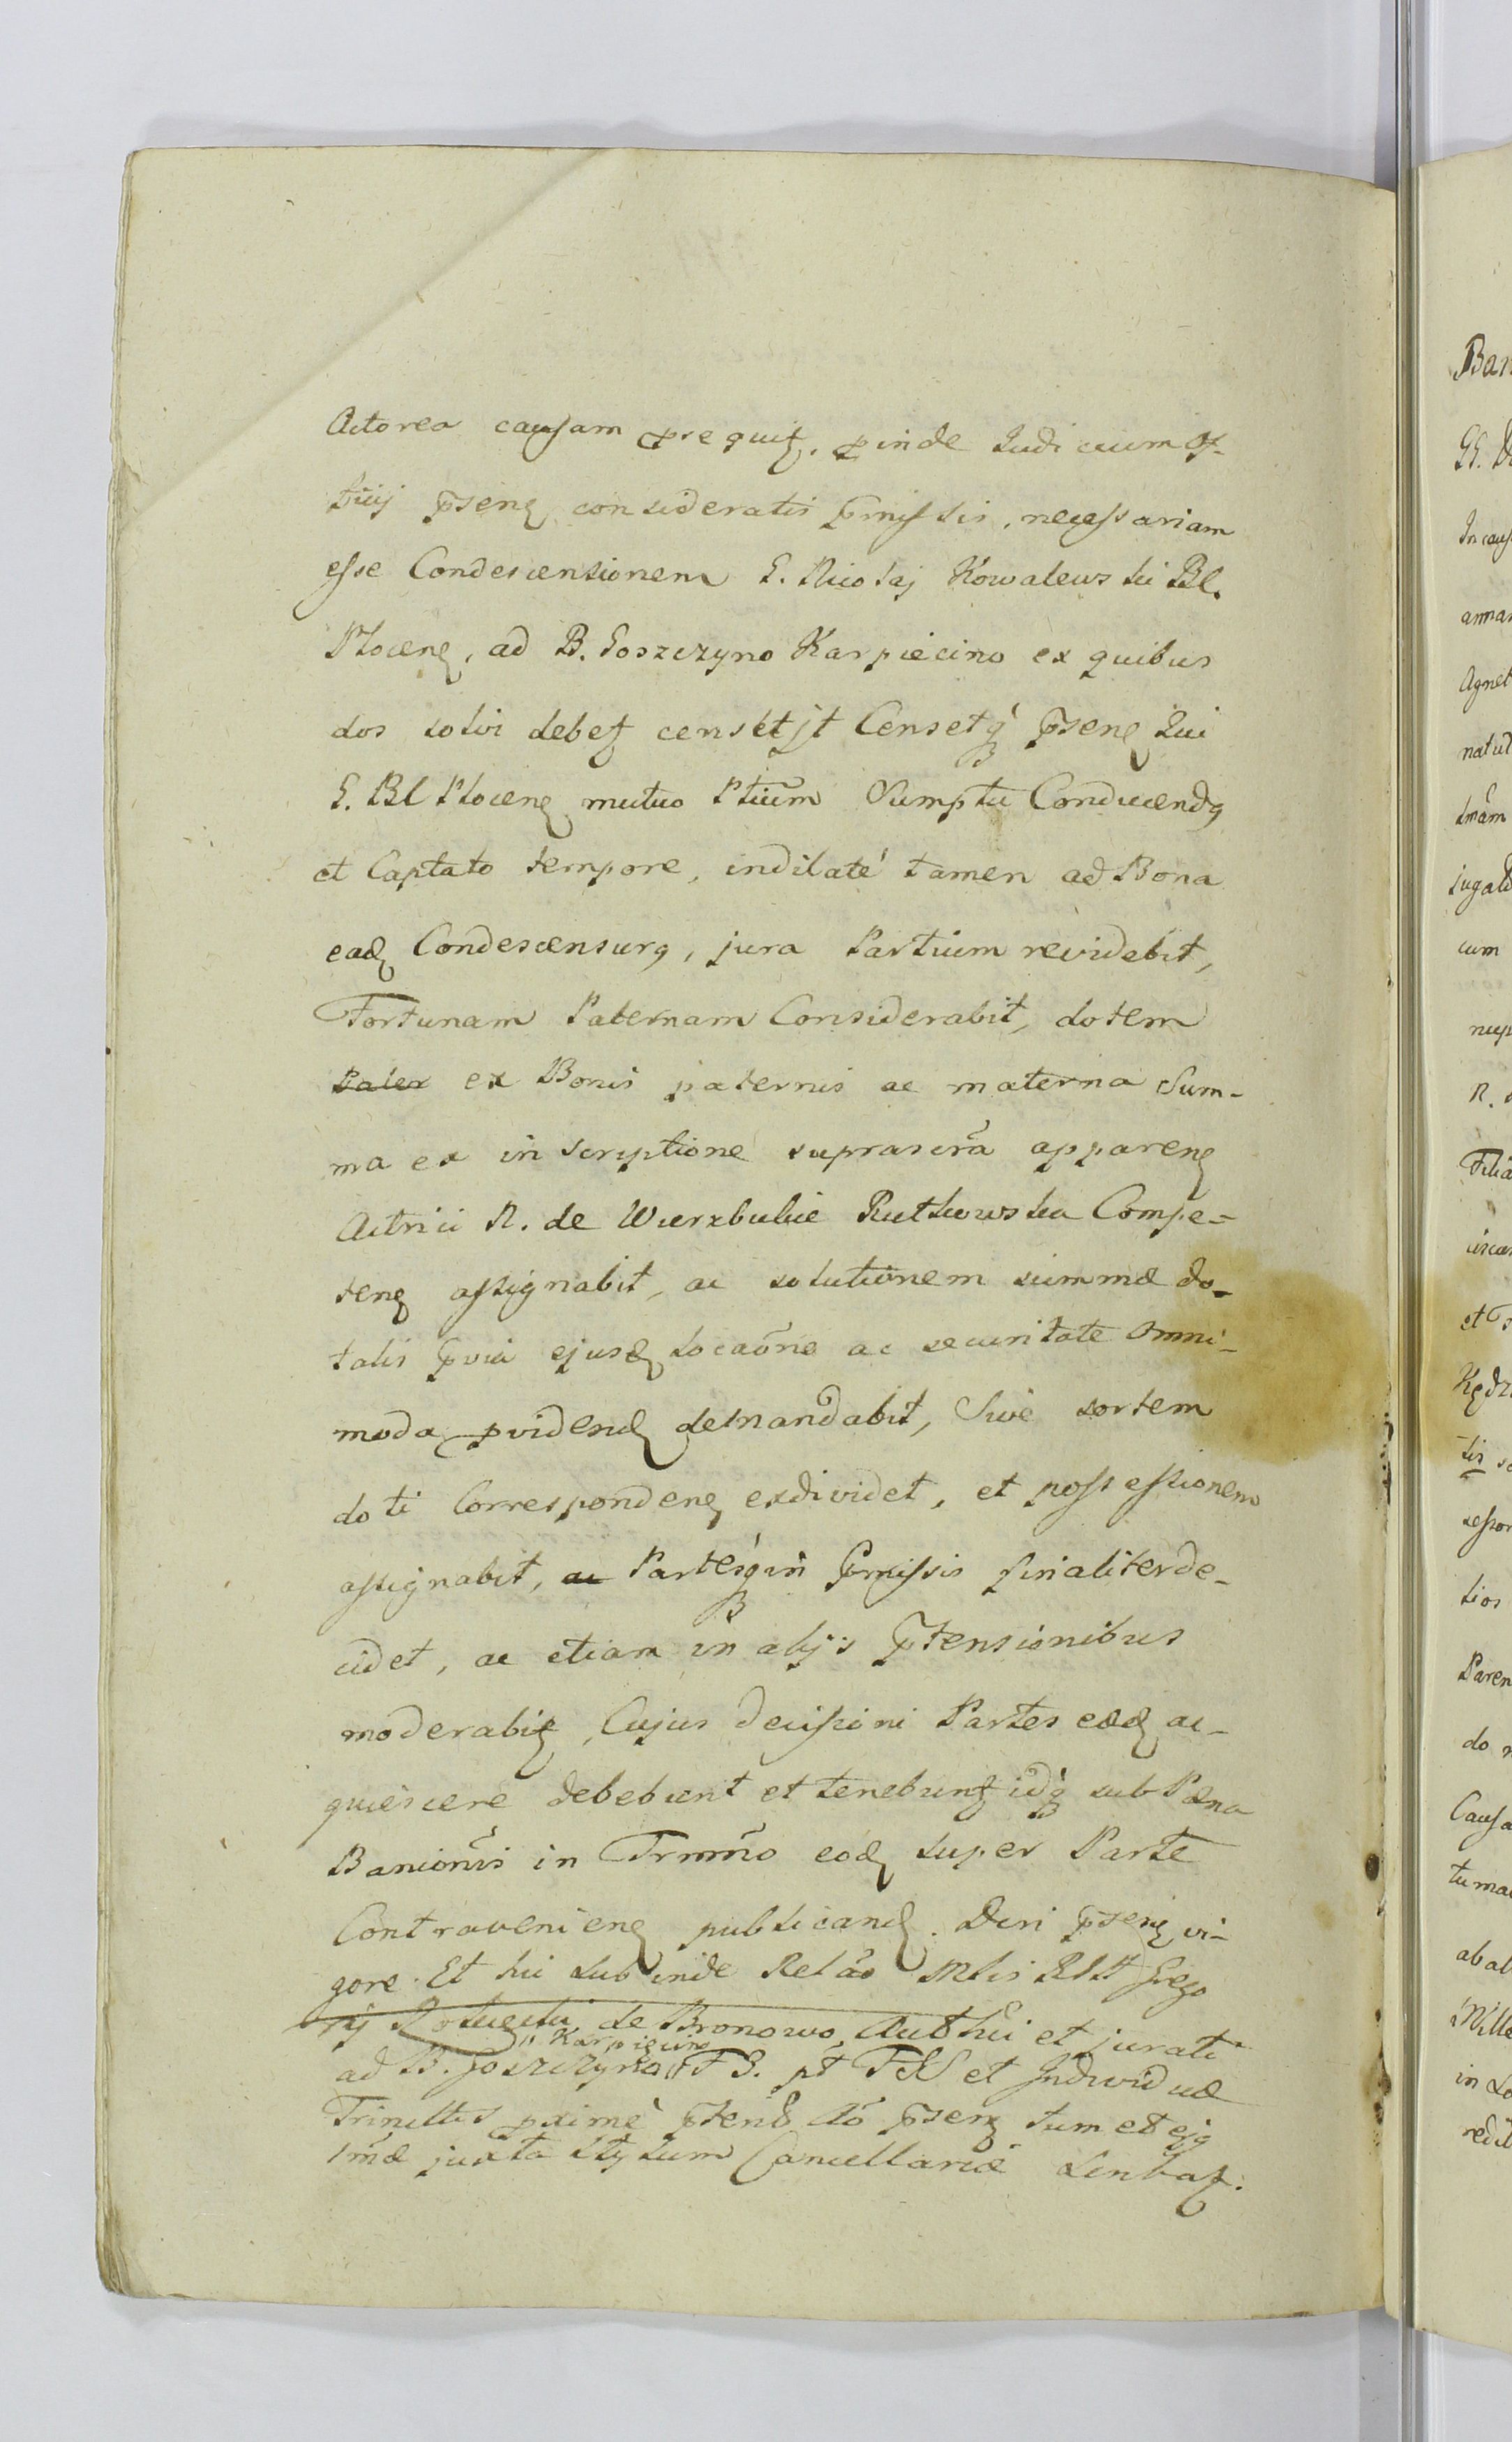 Actorea causam prequit. pinde Judicium Of-
ficij psens consideratis pmissis, necessariam
esse Condescensionem G. Nicolaj Kowalewski Bl.
Plocens, ad B. Goszczyno Karpiecino ex quibus
dos solvi debet censet jt Censetq psens Qui
G. Bl Plocens mutuo Ptium Sumptu Conducendq
et Captato tempore, indilate tamen ad Bona
ead Condescensurq, jura Partium revidebit,
Fortunam Paternam Considerabit, dotem
Pater ex Bonis paternis ac materna Sum-
ma ex inscriptione suprascra apparens
Actrici N. de Wierzbickie Rutkowska Compe-
tens assignabit, ac solutionem summæ do-
talis pvia ejusd Locaone ac securitate omni-
moda pvidend demandabit, Sive sortem
doti Correspondens exdividet, et possessionem
assignabit, ac Partesq in pmissis finaliter de-
cidet, ac etiam in alijs ptensionibus
moderabit, Cujus decisioni Partes eæd ac-
quiescere debebunt et tenebunt idq sub Pæna
Banionis in Trmno eod super Parte
Contraveniens publicand. Dcri psens vi-
gore. Et hic subinde Relao Mlis RMtt Grego
rij de Bronowo, Authci et jurati
ad B. Goszczyno " Karpiecino " F S. pt F et Individuæ
Trinittis pxime ptend Ao psens tum et ejq
Imæ juxta Stylum Cancellariæ